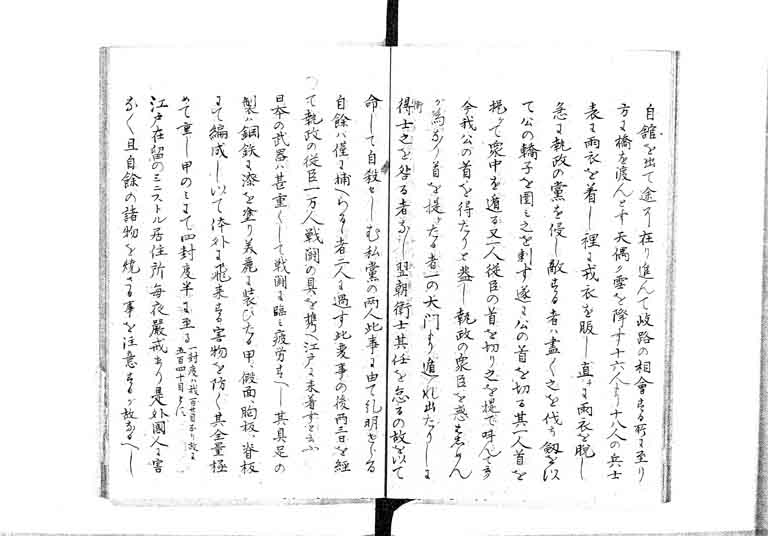 自舘を出て途に在り進んて歧路の相會する所に至り
方に橋を渡んとす天偶々雪を降す十六人より十八人の兵士
表に雨衣を着し裡に戎衣を服し直ちに雨衣を脱し
急に執政の黨を侵し敵する者は盡く之を伐ち劔を以
て公の轎子を圍み之を刺す遂に公の首を切る其一人首を
提けて衆中を遁る又一人從臣の首を切り之を提て呼んて言
今我公の首を得たりと蓋し執政の衆臣を惑はしめん
か為なり首を提けたる者一の大門より遁れ出たりしに
得士之を咎る者なし翌朝衛士其任を怠るの故を以て
衛
命して自殺せしむ私黨の両人此事に由て糺明せらる
自餘は僅に捕へらるゝ者二人に過す此変事の後両三日を經
て執政の從臣一万人戦闘の具を携へ江戸に來着すと云ふ
日本の武器は甚重くして戦闘に臨み疲労すへし其具足の
製は鋼鉄に漆を塗り美麗に装ひたる甲、假面、胸板、脊板
にて編成し以て体外に飛来する害物を防く其全量極
めて重し甲のみにて四封度半に至る
一封度は我百廿目余り故に
五百四十目よ
江戸在留のミニストル居住所毎夜嚴戒あり是外國人に害
なく且自餘の諸物を焼さる事を注意するか故なるへし